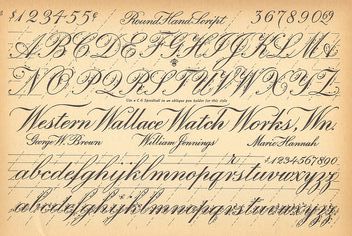 $123455¢ Round Hand Script 36789069
ABCDEFGHIJKLM&
NOPQRSTUVWXYZ
Use a C 6 Speedball in an oblique pen holder for this style
Western Wallace Watch Works, Wn.
George W. Brown William Jennings Marie Hannah
$1234567890
abcdefghijklmnopqrstuvwxyzz
abcdefghijklmnopqrstuvwxyzz